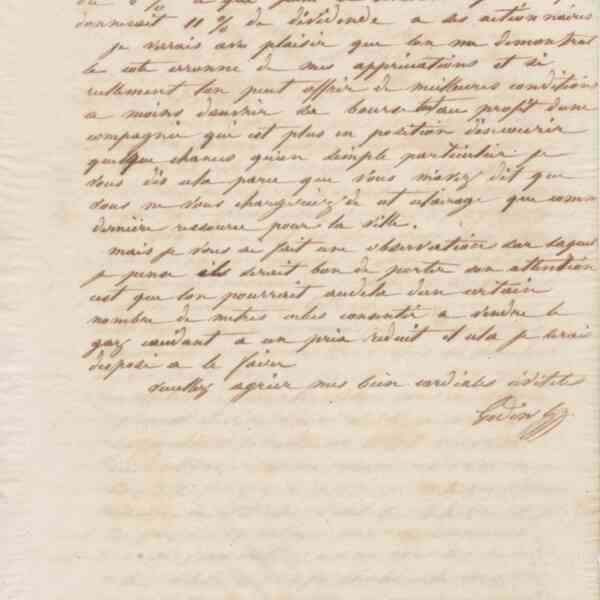 donnerait 11 % de dividende a ses actionnaires
je verais avec plaisir que lon me demontrat
le coté erronné de mes appréciations et si
rellement lon peut offrir de meilleures conditions
a moins douvrir sa bourse au profit dune
compagnie qui est plus en position dencourir
quelque chances quun simple particulier. je
vous dis cela parce que vous mavez dit que
vous ne vous chargeriez de cet eclairage que comme
derniere ressource pour la ville.
mais je vous ai fait une observation sur laquelle
je pense il serait bon de porter son attention
cest que lon pourrait audela dun certain
nombre de metres cubes consentir a vendre le
gaz excédant a un prix reduit et cela je serais
disposé a le faire
veuillez agréer mes bien cordiales civilités
Godin